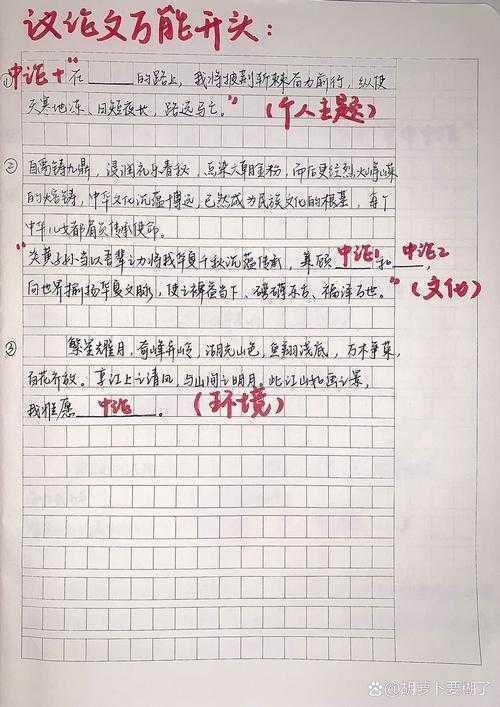 议论文万能开头:
①中论+"在______的路上,我将披荆斩棘奋力前行,纵使
天寒地冻、日短夜长,路远马亡。"(个人主题)
② 自禹铸九鼎,浸润礼乐春秋,点染六朝金粉,而后更经烈火峥嵘
的熔铸,中华文化沉蕴博远,已然成为民族文化的根基,每个
中华儿女都肩负传承使命。
"炎黄子孙当以吾辈之力将我华夏千秋沉蕴传承,兼顾 中论1 和 中论2,
向世界播扬华夏文脉,使之裨益当下、磅礴亘古、福泽万世。"(文化)
③ 繁星耀月,奇峰异岭,湖光山色,鱼翔浅底,万木争荣,
百花齐放。享江上之清风,与山间之明月。此江山如画之景,
我惟愿 中论 。(环境)
胡萝卜要糊了